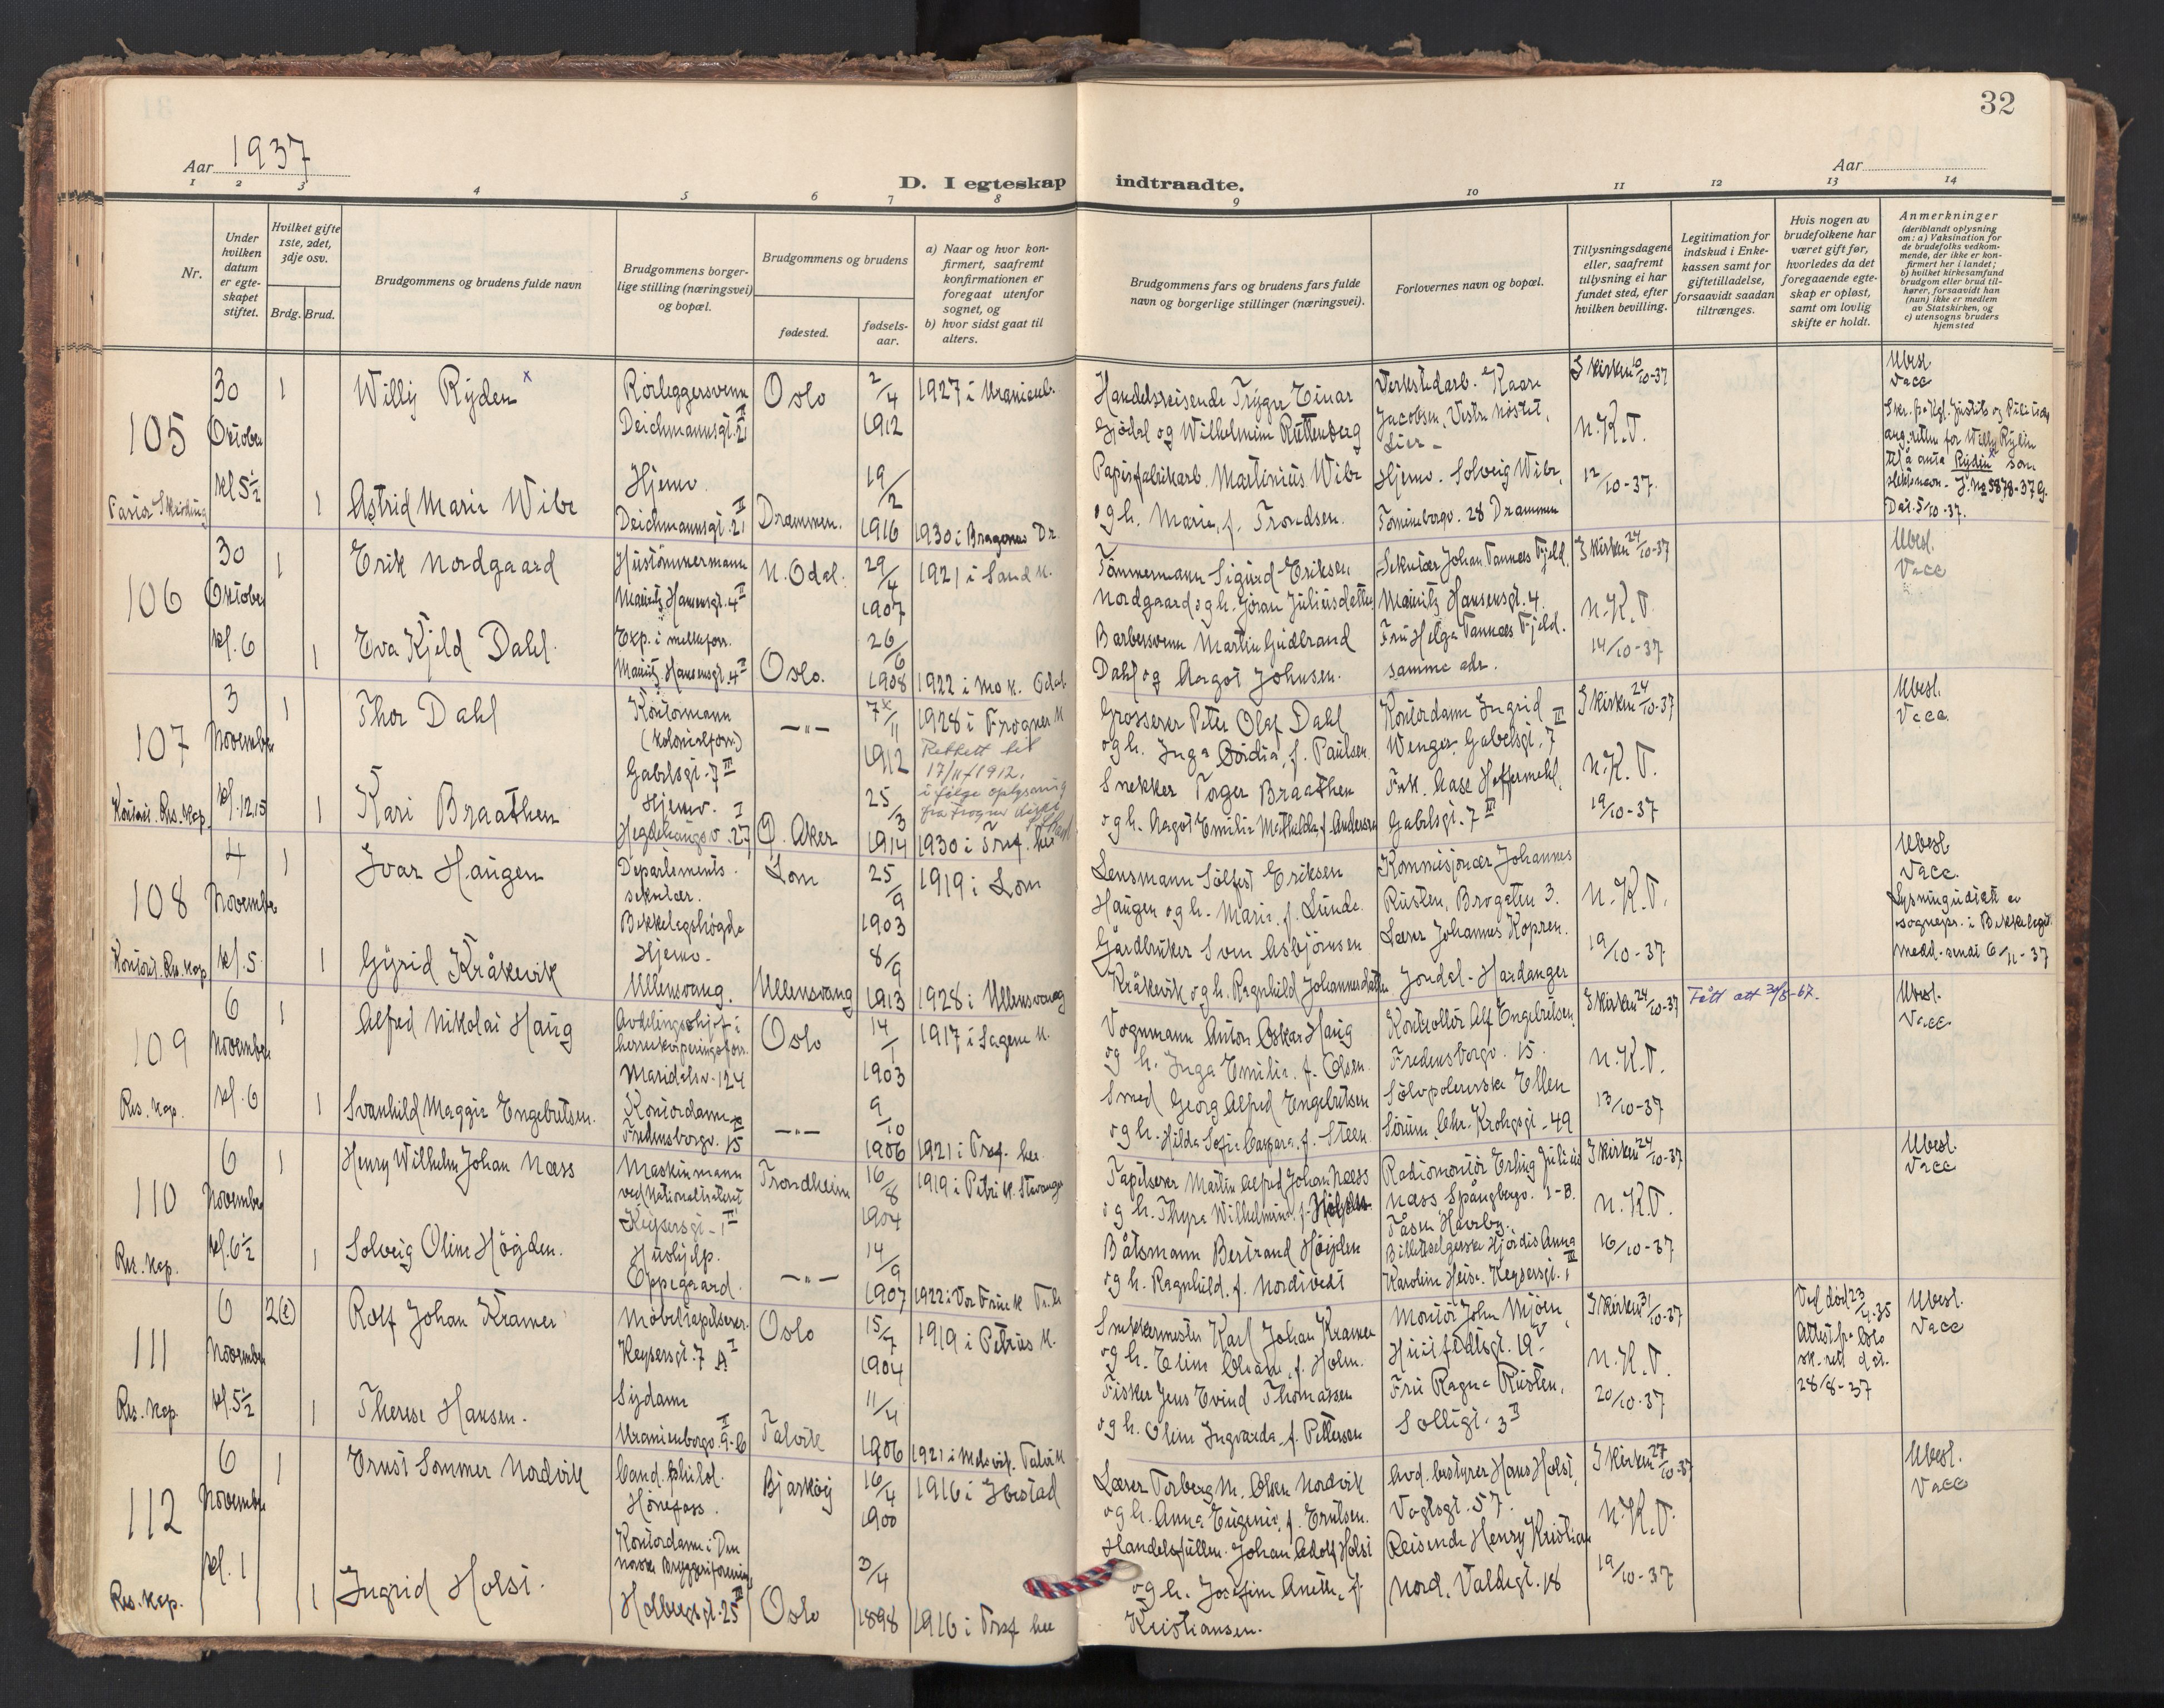 32
Aar 1937
Aar
D. I egteskap indtraadte.
1 2 3 4 5 6 7 8 9 10 11 12 13 14
Nr.
Under
hvilken
datum
er egte-
skapet
stiftet.
Hvilket gifte
1ste, 2det,
3dje osv.
Brdg. Brud.
Brudgommens og brudens fulde navn
Brudgommens borger-
lige stilling (næringsvei)
og bopæl.
Brudgommens og brudens
fødested.
fødsels-
aar.
a) Naar og hvor kon-
firmert, saafremt
konfirmationen er
foregaat utenfor
sognet, og
b) hvor sidst gaat til
alters.
Brudgommens fars og brudens fars fulde
navn og borgerlige stillinger (næringsvei).
Forlovernes navn og bopæl.
Tillysningsdagene
eller, saafremt
tillysning ei har
fundet sted, efter
hvilken bevilling.
Legitimation for
indskud i Enke-
kassen samt for
giftetilladelse,
forsaavidt saadan
tiltrænges.
Hvis nogen av
brudefolkene har
været gift før,
hvorledes da det
foregaaende egte-
skap er opløst,
samt om lovlig
skifte er holdt.
Anmerkninger
(deriblandt oplysning
om: a) Vaksination for
de brudefolks vedkom-
mende, der ikke er kon-
firmert her i landet;
b) hvilket kirkesamfund
brudgom eller brud til-
hører, forsaavidt han
(hun) ikke er medlem
av Statskirken, og
c) utensogns bruders
hjemsted
105
30
Oktober
kl 5½
1
Willy Rýden x
Rörleggersvenn
Deichmannsgt. 21 II
Oslo
2/4
1912
1927 i Uranienb.
Handelsreisende Trygve Einar
Gjödal og Wilhelmine Ruttenberg
Verkstedarb. Kaare
Jacobsen, Vestre Nöstet,
Lier
I kirken 10/10-37
N.K.T.
12/10-37
Ubesl.
Vacc
Rydin
J. No 5878-37
Dat. 5/10-37.
1
Astrid Marie Wibe
Hjemv.
Deichmannsgt. 21 II
Drammen.
19/2
1916
1930 i Bragernes Dr.
Papirfabrikarb. Martinius Wibe
og h. Marie, f. Trondsen.
Hjemv. Solveig Wibe,
28 Drammen
106
30
Oktober
kl. 6
1
Erik Nordgaard
Hustömmermann
Mauritz Hansensgt. 4 II
N. Odal.
29/4
1907
1921 i Sand K.
Tömmermann Sigurd Eriksen
Nordgaard og h. Jöran Juliusdatter
Sekretær Johan Tannæs Fjeld,
Mauritz Hansensgt. 4.
I kirken 24/10-37
N.K.T.
14/10-37
Ubesl.
Vacc
1
Eva Kjeld Dahl.
Exp. i melkeforr.
Mauritz Hansensgt. 4 II
Oslo.
26/6
1908
1922 i Mo K. Odal
Barbersvenn Martin Gudbrand
Dahl og Aagot Johnsen.
Fru Helga Tannæs Fjeld.
samme adr.
107
3
November
kl. 12.15
Kontoret. Res. Kap.
1
Thor Dahl
Kontormann
(kolonialforr.)
Gabelsgt. 7 III
—"—
7x/11
1912
1928 i Frogner K
Rettett til
17/11 1912.
i følge oplysning
fra Frogner
Grosserer Peter Olaf Dahl
og h. Inga f. Paulsen
Kontordame Ingrid
Wenger, Gabelsgt. 7 III
I kirken 24/10-37
N.K.T.
19/10-37
Ubesl.
Vacc.
1
Kari Braathen
Hjemv. I
Hegdehaugsv. 27
Ö. Aker
25/3
1914
1930 i Tref. her
Snekker Torger Braathen
og h. Aagot Emilie Mathilde, f. Andersen
Frk. Aase Heffermehl,
Gabelsgt. 7 III
108
4
November
kl. 5.
Kontoret. Res. Kap
1
Ivar Haugen
Departements-
sekretær.
Bekkelagshögda
Lom
25/9
1903
1919 i Lom
Lensmann Sölfest Eriksen
Haugen og h. Marie f. Lunde.
Kommisjonær Johannes
Rusten, Brogaten 3.
N.K.T.
19/10-37
Ubesl.
Vacc.
Lysningsutsatt av
sognepr. i Bekkelaget.
Medd. sendt 6/11-37
1
Gyrid Kråkevik
Hjemv.
Ullensvang.
Ullensvang
8/9
1913
1928 i Ullensvang
Gårdbruker Sven Asbjörnsen
Kråkevik og h. Ragnhild Johannesdatter
Lærer Johannes Kopren.
Jondal - Hardanger
109
6
November
kl. 6
Res. Kap.
1
Alfred Nikolai Haug
Avdelingschef i
herreekviperingsforr.
Maridalsv. 124
Oslo
14/1
1903
1917 i Sagene K.
Vognmann Anton Oskar Haug
og h. Inga Emilie f. Olsen
Kontrollör Alf Engebretsen,
Fredensborgv. 15.
I kirken 24/10-37
N.K.T.
13/10-37
Fått att 30/8-67.
Ubesl.
Vacc
1
Svanhild Maggie Engebretsen.
Kontordame
Fredensborgv. 15 III
—"—
9/10
1906
1921 i Tref. her
Smed Georg Alfred Engebretsen
og h. Hilda Sofie Barbara f. Steen.
Sölvpolererske Ellen
Sörum, Chr. Krohgsgt. 49
110
6
November
kl. 6½
Res. Kap.
1
Henry Wilhelm Johan Næss
Maskinmann
ved Nationaltheatret
Keysersgt. 1 III
Trondheim
16/8
1904
1919 i Petri K. Stavanger
Tapetserer Martin Alfred Johan Næss
og h. Thyra Wilhelmine f.
Radiomontör Erling Julius
Næss Spångbergv. 1-B.
Tåsen Haveby.
I kirken 24/10-37
N.K.T.
16/10-37
Ubesl.
Vacc
1
Solveig Oline Höyden.
Hushjelp.
Oppegaard.
—"—
14/9
1907
1922 i Vor Frue K Tr.h
Båtsmann Bertrand Höyden
og h. Ragnhild. f. Nordtvedt
Billettselgerske Hjördis Anna
Karoline Heise. Keysersgt. 1 III
111
6
November
kl. 5½
Res. Kap.
2(e)
Rolf Johan Kramer
Möbeltapetserer.
Keysersgt. 7 A I
Oslo
15/7
1904
1919 i Petrus K.
Snekkermester Karl Johan Kramer
og h. Elise f. Holm.
Montör John Mjöen,
Huitfeldtsgt. 19 V
I kirken 31/10-37
N.K.T.
20/10-37
Ved död 23/4-35
Attest fra Oslo
sk. rett dat.
28/8-37
Ubesl.
Vacc
1
Therese Hansen.
Sydame
Uranienborgv. 9-b II
Talvik
11/4
1906
1921 i Talvik
Fisker Jens Evind Thomassen
og h. Oline Ingvarda f. Pettersen
Fru Ragna Rusten,
Solligt. 3 II
112
6
November
kl. 1
Res. Kap.
1
Ernst Sommer Nordvik
Cand. philol.
Hönefoss.
Bjarköy
16/4
1900
1916 i Ibestad
Lærer Torberg M. Olsen Nordvik
og h. Anna Eugenie, f. Erntsen.
Avd. bestyrer Hans Holst,
Vogtsgt. 57.
I kirken 27/10-37
N.K.T.
19/10-37
Ubesl.
Vacc
1
Ingrid Holst.
Kontordame i Den
norske Bryggeriforening
Holbergsgt. 25 III
Oslo
3/4
1898
1916 i Tref her
Handelsfullm. Johan Adolf Holst
og h. Josefine Anette, f.
Kristiansen.
Reisende Henry Kristian
Nord, Valdegt. 18